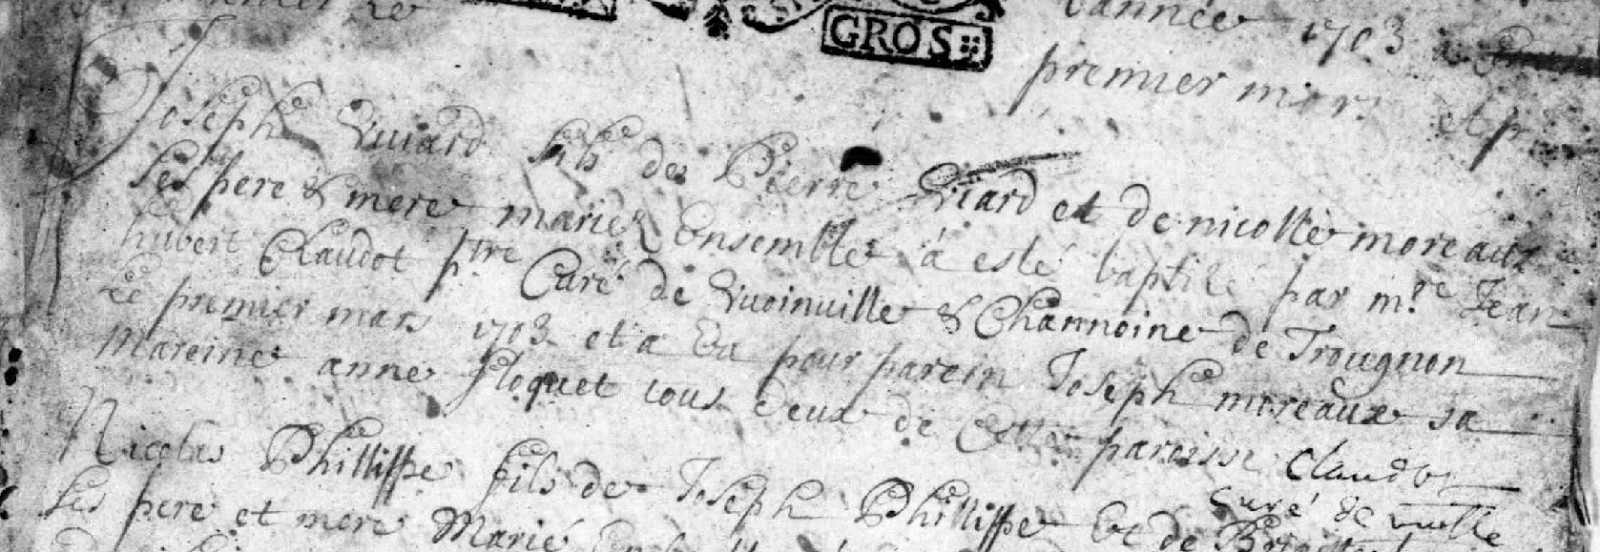 GROS
l'année 1703
premier mars
Joseph Viiard fils de Pierre Viard et de nicolle moreaux
ses pere & mere mariez Ensemble à esté baptizé par mre Jean
hubert Claudot ptre Curé de Vuoinville & Channoine de Trougnon
Le premier mars 1703 et a Eu pour parein Joseph moreaux sa
mareine anne floquet tous deux de cette paroisse Claudot
curé de
Nicolas Phillippe fils de Joseph Phillippe Et de
ses pere et mere Marié